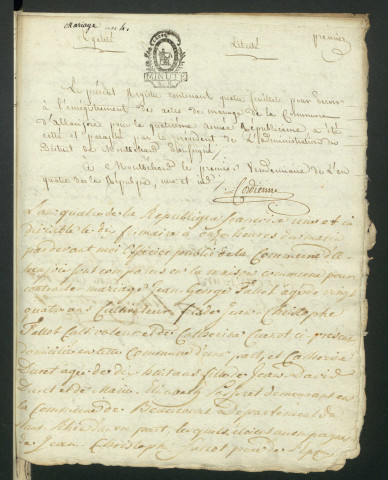 Mariage an 4.
Egalité
Liberté
premier
MINUTE
Le présent Registre contenant quatre feuillets pour servir
à l'enregistrement des actes de mariage de la Commune
d'allanjoie pour la quatrieme année Républicaine a été
cotté et paraphé par le président de L'administration du
District de Montbéliard soussigné
à Montbéliard le premier Vendemiaire de L'an
quatre de la République, une et ind.
L'an quatre de la Republique francaise une et in
divisible le dix frimaire à onze heures du matin
par devant moi officier public de la Commune d'al
sont comparus en la maison commune pour
contracter mariage Jean George fallot agé de vingt
quatre an Cultivateur fils de Jean Christophe
fallot Cultivateur et de Catherine Cuenot ci présens
domiciliés en cette Commune d'une part, et Catherine
Duret agée de dix huit ans fille de Jean David
Duret et de Marie demeurant en
la Commune de Beaucourt Departement du
haut Rhin d'autre part, lesquels étoient accompagnés
de Jean Christophe fallot pere de